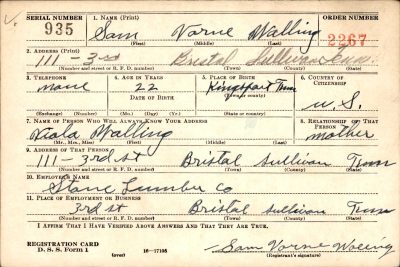 SERIAL NUMBER 1. NAME (Print) ORDER NUMBER
935 Sam Varne Walling 2267
(First) (Middle) (Last)
2. ADDRESS (Print)
111 - 3rd Bristol Sullivan Tenn.
(Number and street or R. F. D. number) (Town) (County) (State)
3. TELEPHONE 4. AGE IN YEARS 5. PLACE OF BIRTH 6. COUNTRY OF CITIZENSHIP
none 22 Kingsport Tenn
DATE OF BIRTH (Town or county) U.S.
7. NAME OF PERSON WHO WILL ALWAYS KNOW YOUR ADDRESS 8. RELATIONSHIP OF THAT PERSON
Viola Walling mother
(Mr., Mrs., Miss) (First) (Middle) (Last)
9. ADDRESS OF THAT PERSON
111 - 3rd St Bristol Sullivan Tenn
(Number and street or R. F. D. number) (Town) (County) (State)
10. EMPLOYER'S NAME
Stone Lumber Co
11. PLACE OF EMPLOYMENT OR BUSINESS
3rd st Bristol Sullivan Tenn
(Number and street or R. F. D. number) (Town) (County) (State)
I AFFIRM THAT I HAVE VERIFIED ABOVE ANSWERS AND THAT THEY ARE TRUE.
REGISTRATION CARD
D. S. S. Form 1 (over) 16-17105 Sam Varne
(Registrant's signature)